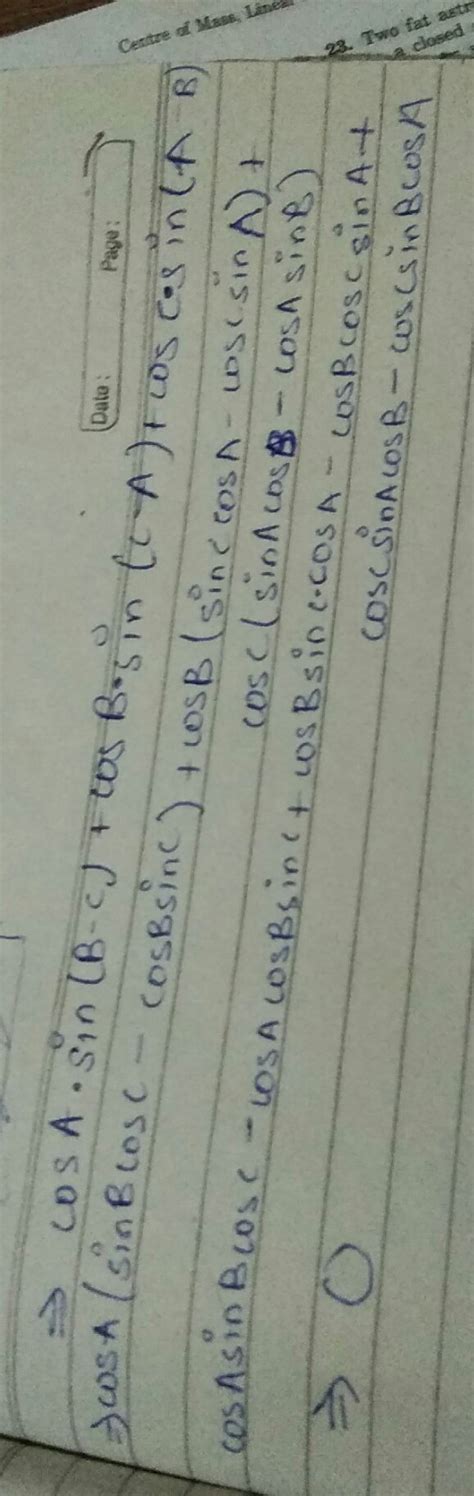 Centre of Mass, Linear
23. Two fat astr
a closed
Date:
Page:
⇒ cos A · sin (B - C) + cos B · sin (C - A) + cos C · sin (A - B)
⇒ cos A (sin B cos C - cos B sin C) + cos B (sin C cos A - cos C sin A) +
cos C (sin A cos B - cos A sin B)
cos A sin B cos C - cos A cos B sin C + cos B sin C · cos A - cos B cos C sin A +
cos C sin A cos B - cos C sin B cos A
⇒ 0